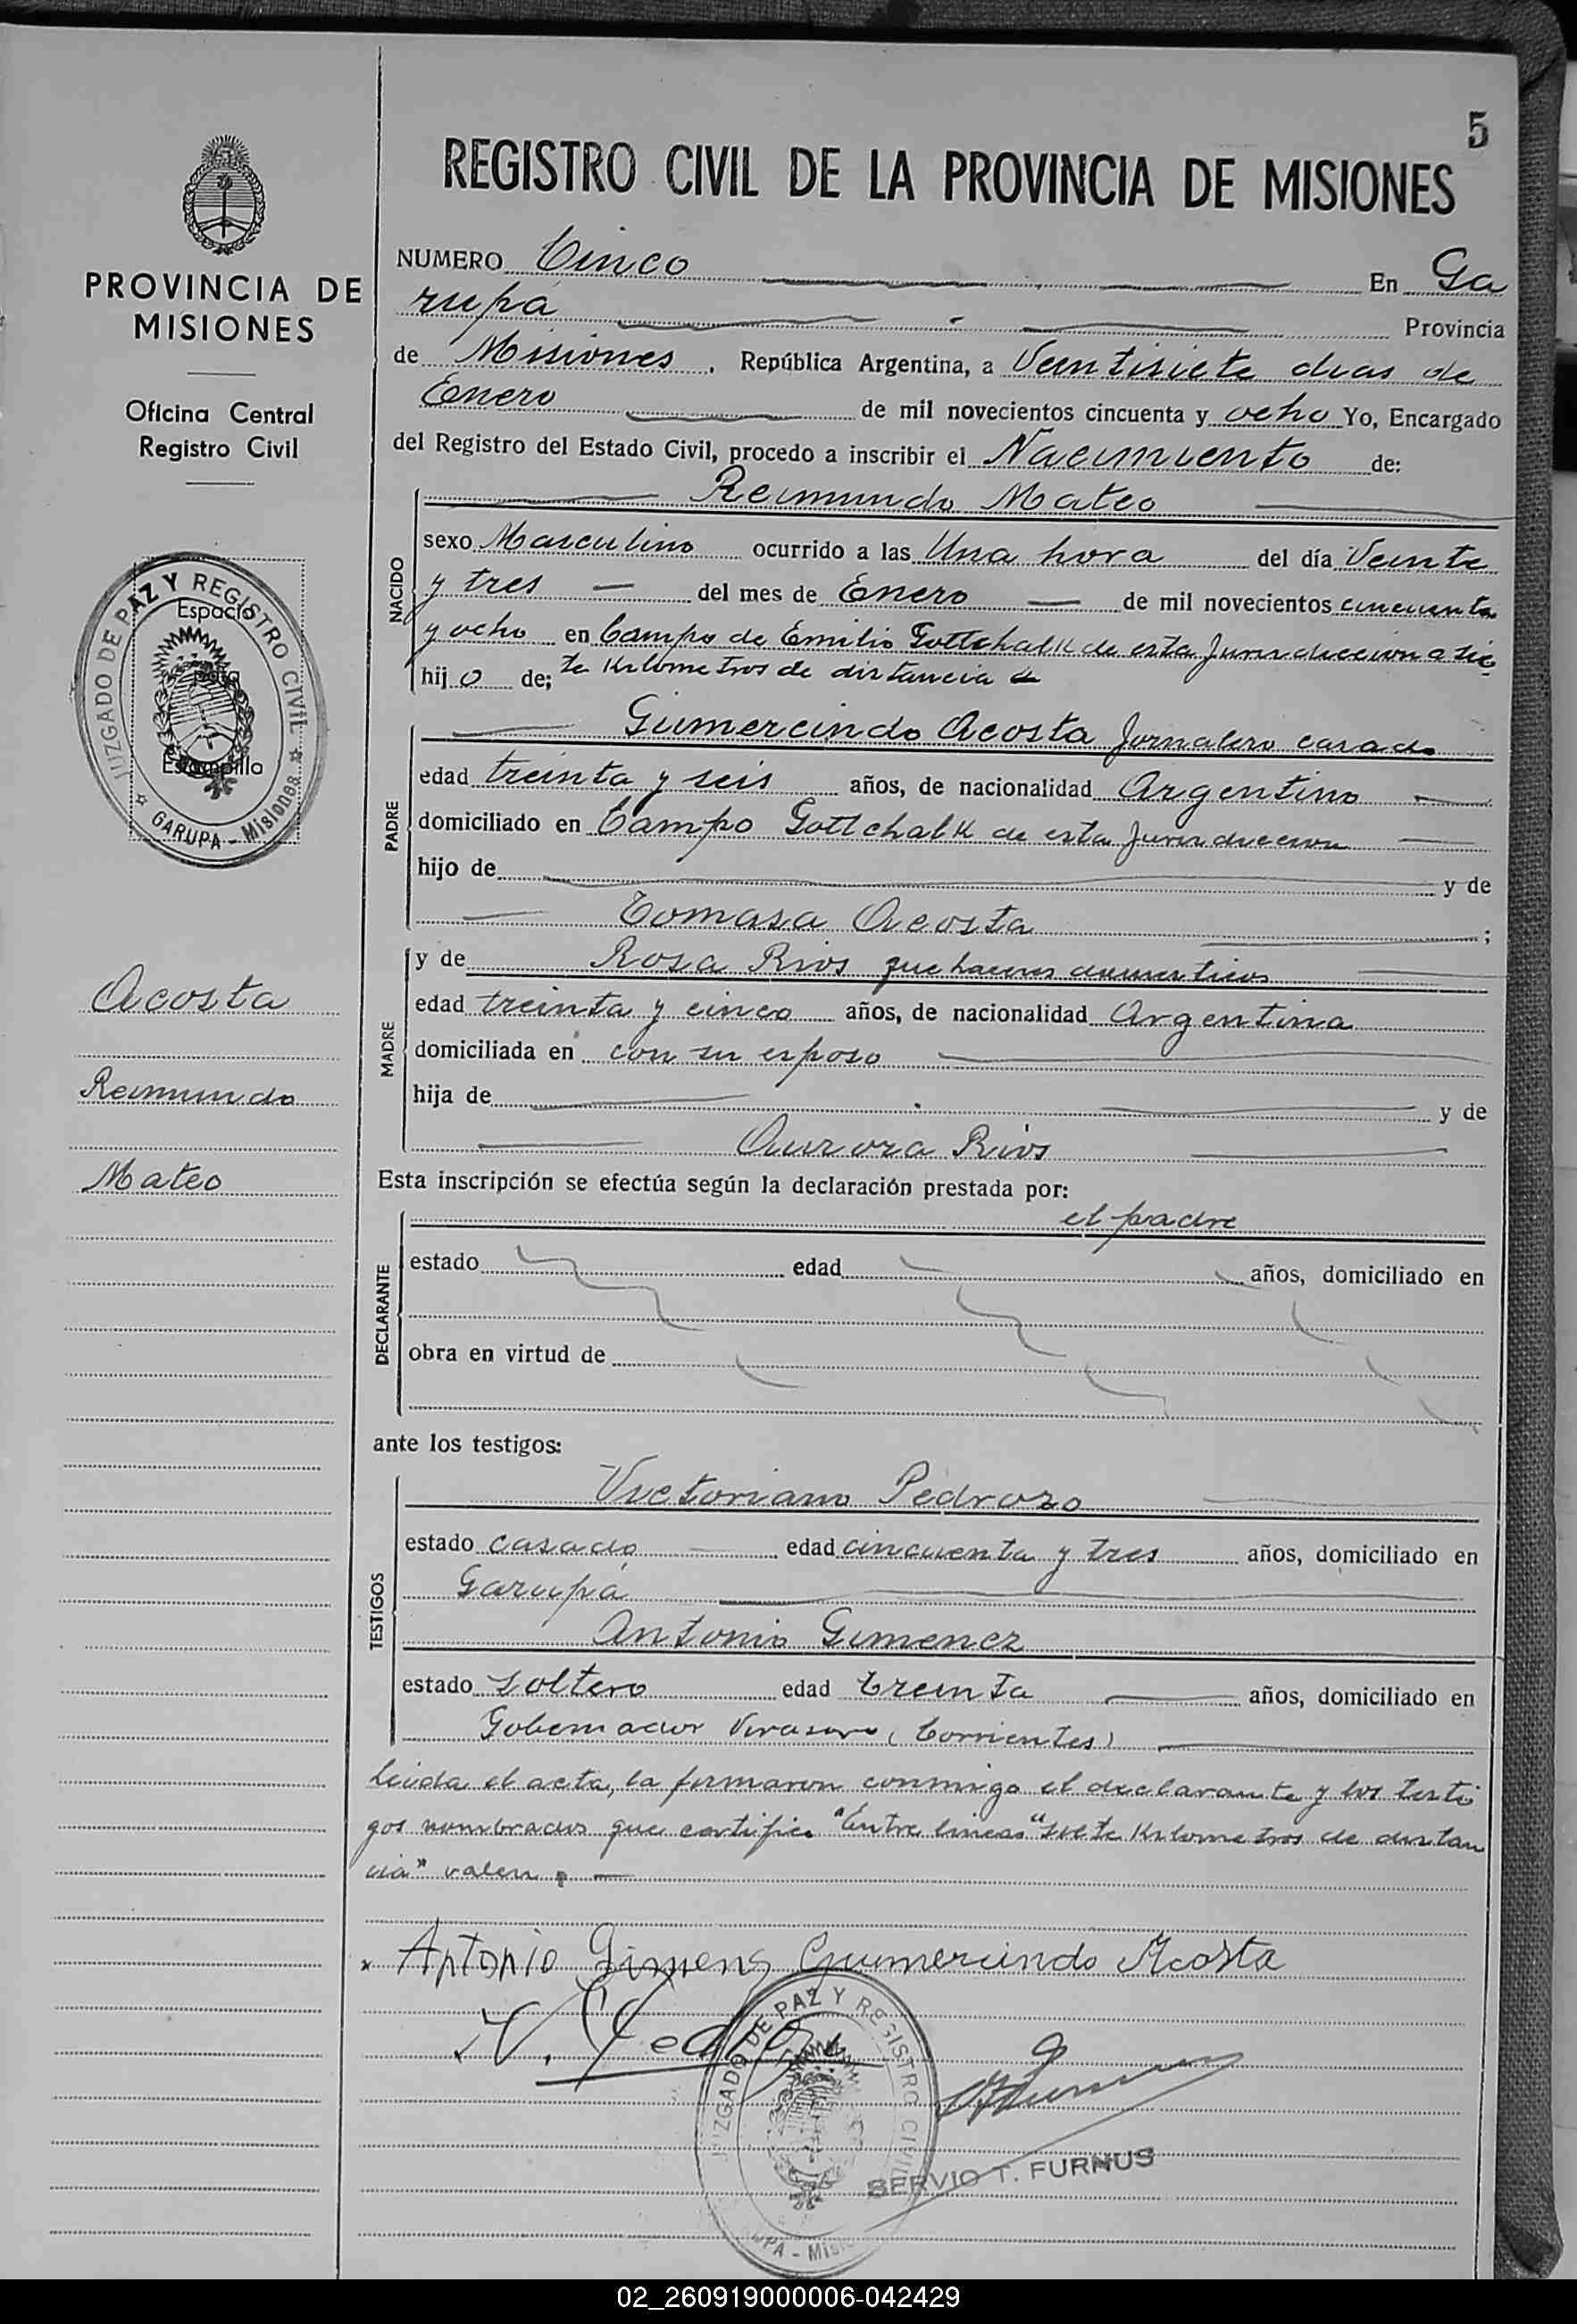 5
REGISTRO CIVIL DE LA PROVINCIA DE MISIONES
PROVINCIA DE
MISIONES
Oficina Central
Registro Civil
JUZGADO DE PAZ Y REGISTRO CIVIL
GARUPA - Misiones
Espacio
para
Estampilla
Acosta
Reimundo
Mateo
NUMERO Cinco En Ga
rupá Provincia
de Misiones. República Argentina, a Veintisiete dias de
Enero de mil novecientos cincuenta y ocho Yo, Encargado
del Registro del Estado Civil, procedo a inscribir el Nacimiento de:
NACIDO
Reimundo Mateo
sexo Masculino ocurrido a las Una hora del día Veinte
y tres del mes de Enero de mil novecientos cincuenta
y ocho en Campo de Emilio Gottchalk de esta Jurisdiccion a sie
hijo de; te Kilometros de distancia
PADRE
Gumercindo Acosta Jornalero casado
edad treinta y seis años, de nacionalidad Argentino
domiciliado en Campo Gottchalk de esta Jurisdiccion
hijo de y de
Tomasa Acosta ;
MADRE
y de Rosa Rios quehaceres domesticos
edad treinta y cinco años, de nacionalidad Argentina
domiciliada en con su esposo
hija de y de
Aurora Rios
Esta inscripción se efectúa según la declaración prestada por:
DECLARANTE
el padre
estado edad años, domiciliado en
obra en virtud de
ante los testigos:
TESTIGOS
Victoriano Pedrozo
estado casado edad cincuenta y tres años, domiciliado en
Garupá
Antonio Gimenez
estado soltero edad treinta años, domiciliado en
Gobernador Virasoro (Corrientes)
Leida el acta, la firmaron conmigo el declarante y los testi
gos nombrados que certifico "Entre lineas" "siete Kilometros de distan
cia" valen.
Antonio Gimenez Gumercindo Acosta
V. Pedrozo
JUZGADO DE PAZ Y REGISTRO CIVIL
SERVIO T. FURNUS
02_260919000006-042429